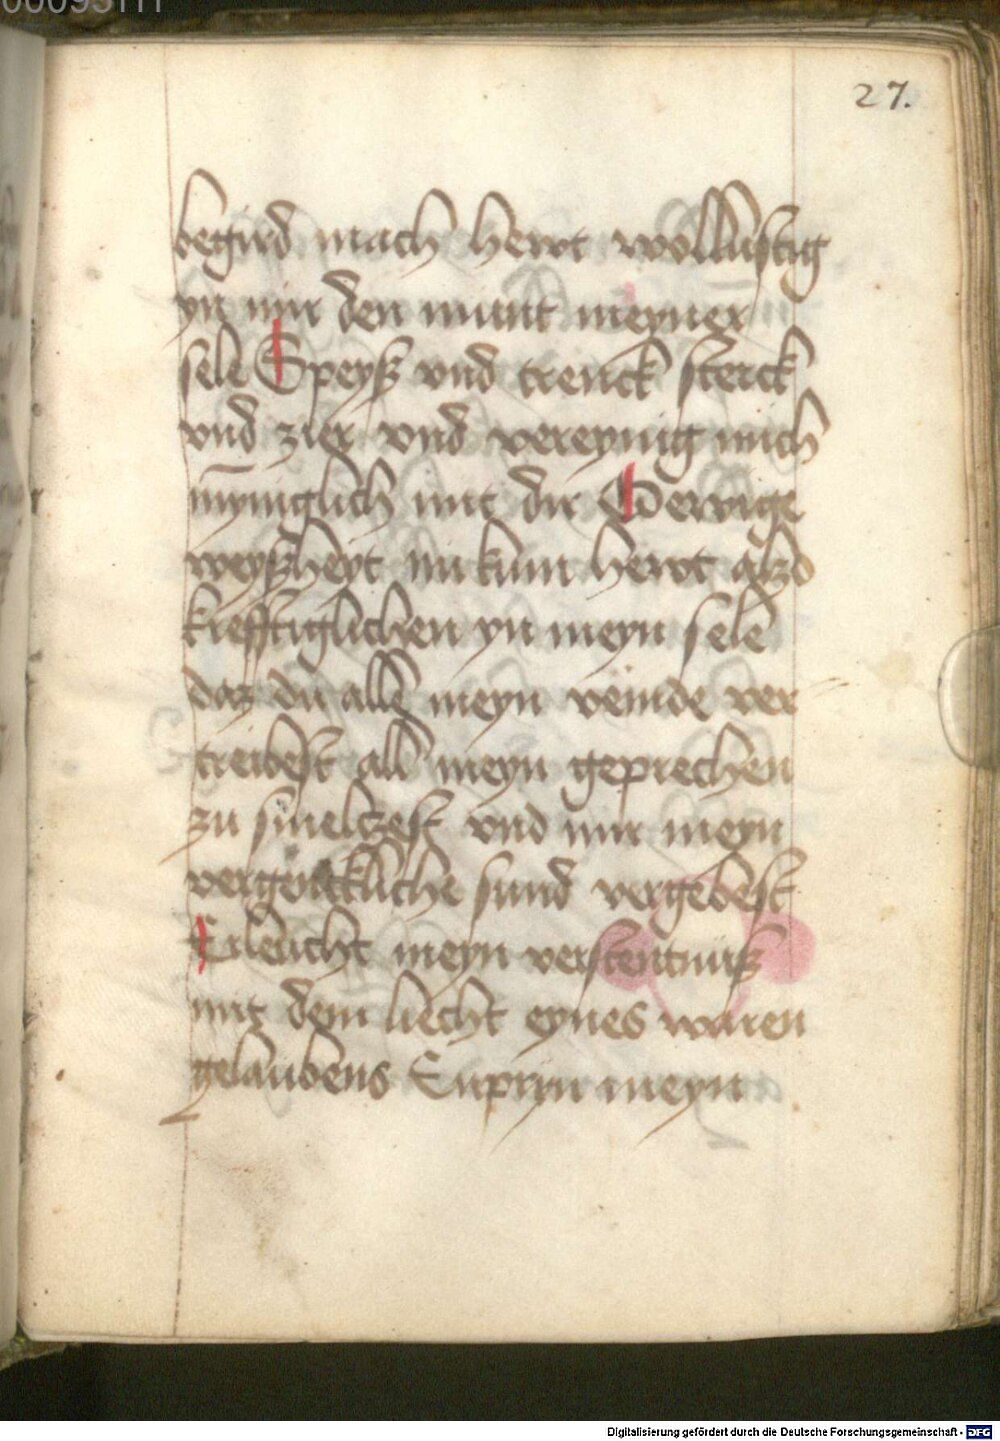 27.
begird mach hewt wollustig
yn mir den munt meyner
sele Speyß vnd trenck sterck
vnd zier vnd vereynig mich
mÿniglich mit dir O ewige
weyßheyt nu kum hewt alzo
krefftiglichen yn meyn sele
daz du alle meyn veinde ver
treibest all meyn geprechen
zu smeltzest vnd mir meyn
sund vergebest
Erleucht meyn verstentnuß
mit dem liecht eynes waren
gelaubens Enpryn meyn
Digitalisierung gefördert durch die Deutsche Forschungsgemeinschaft - DFG